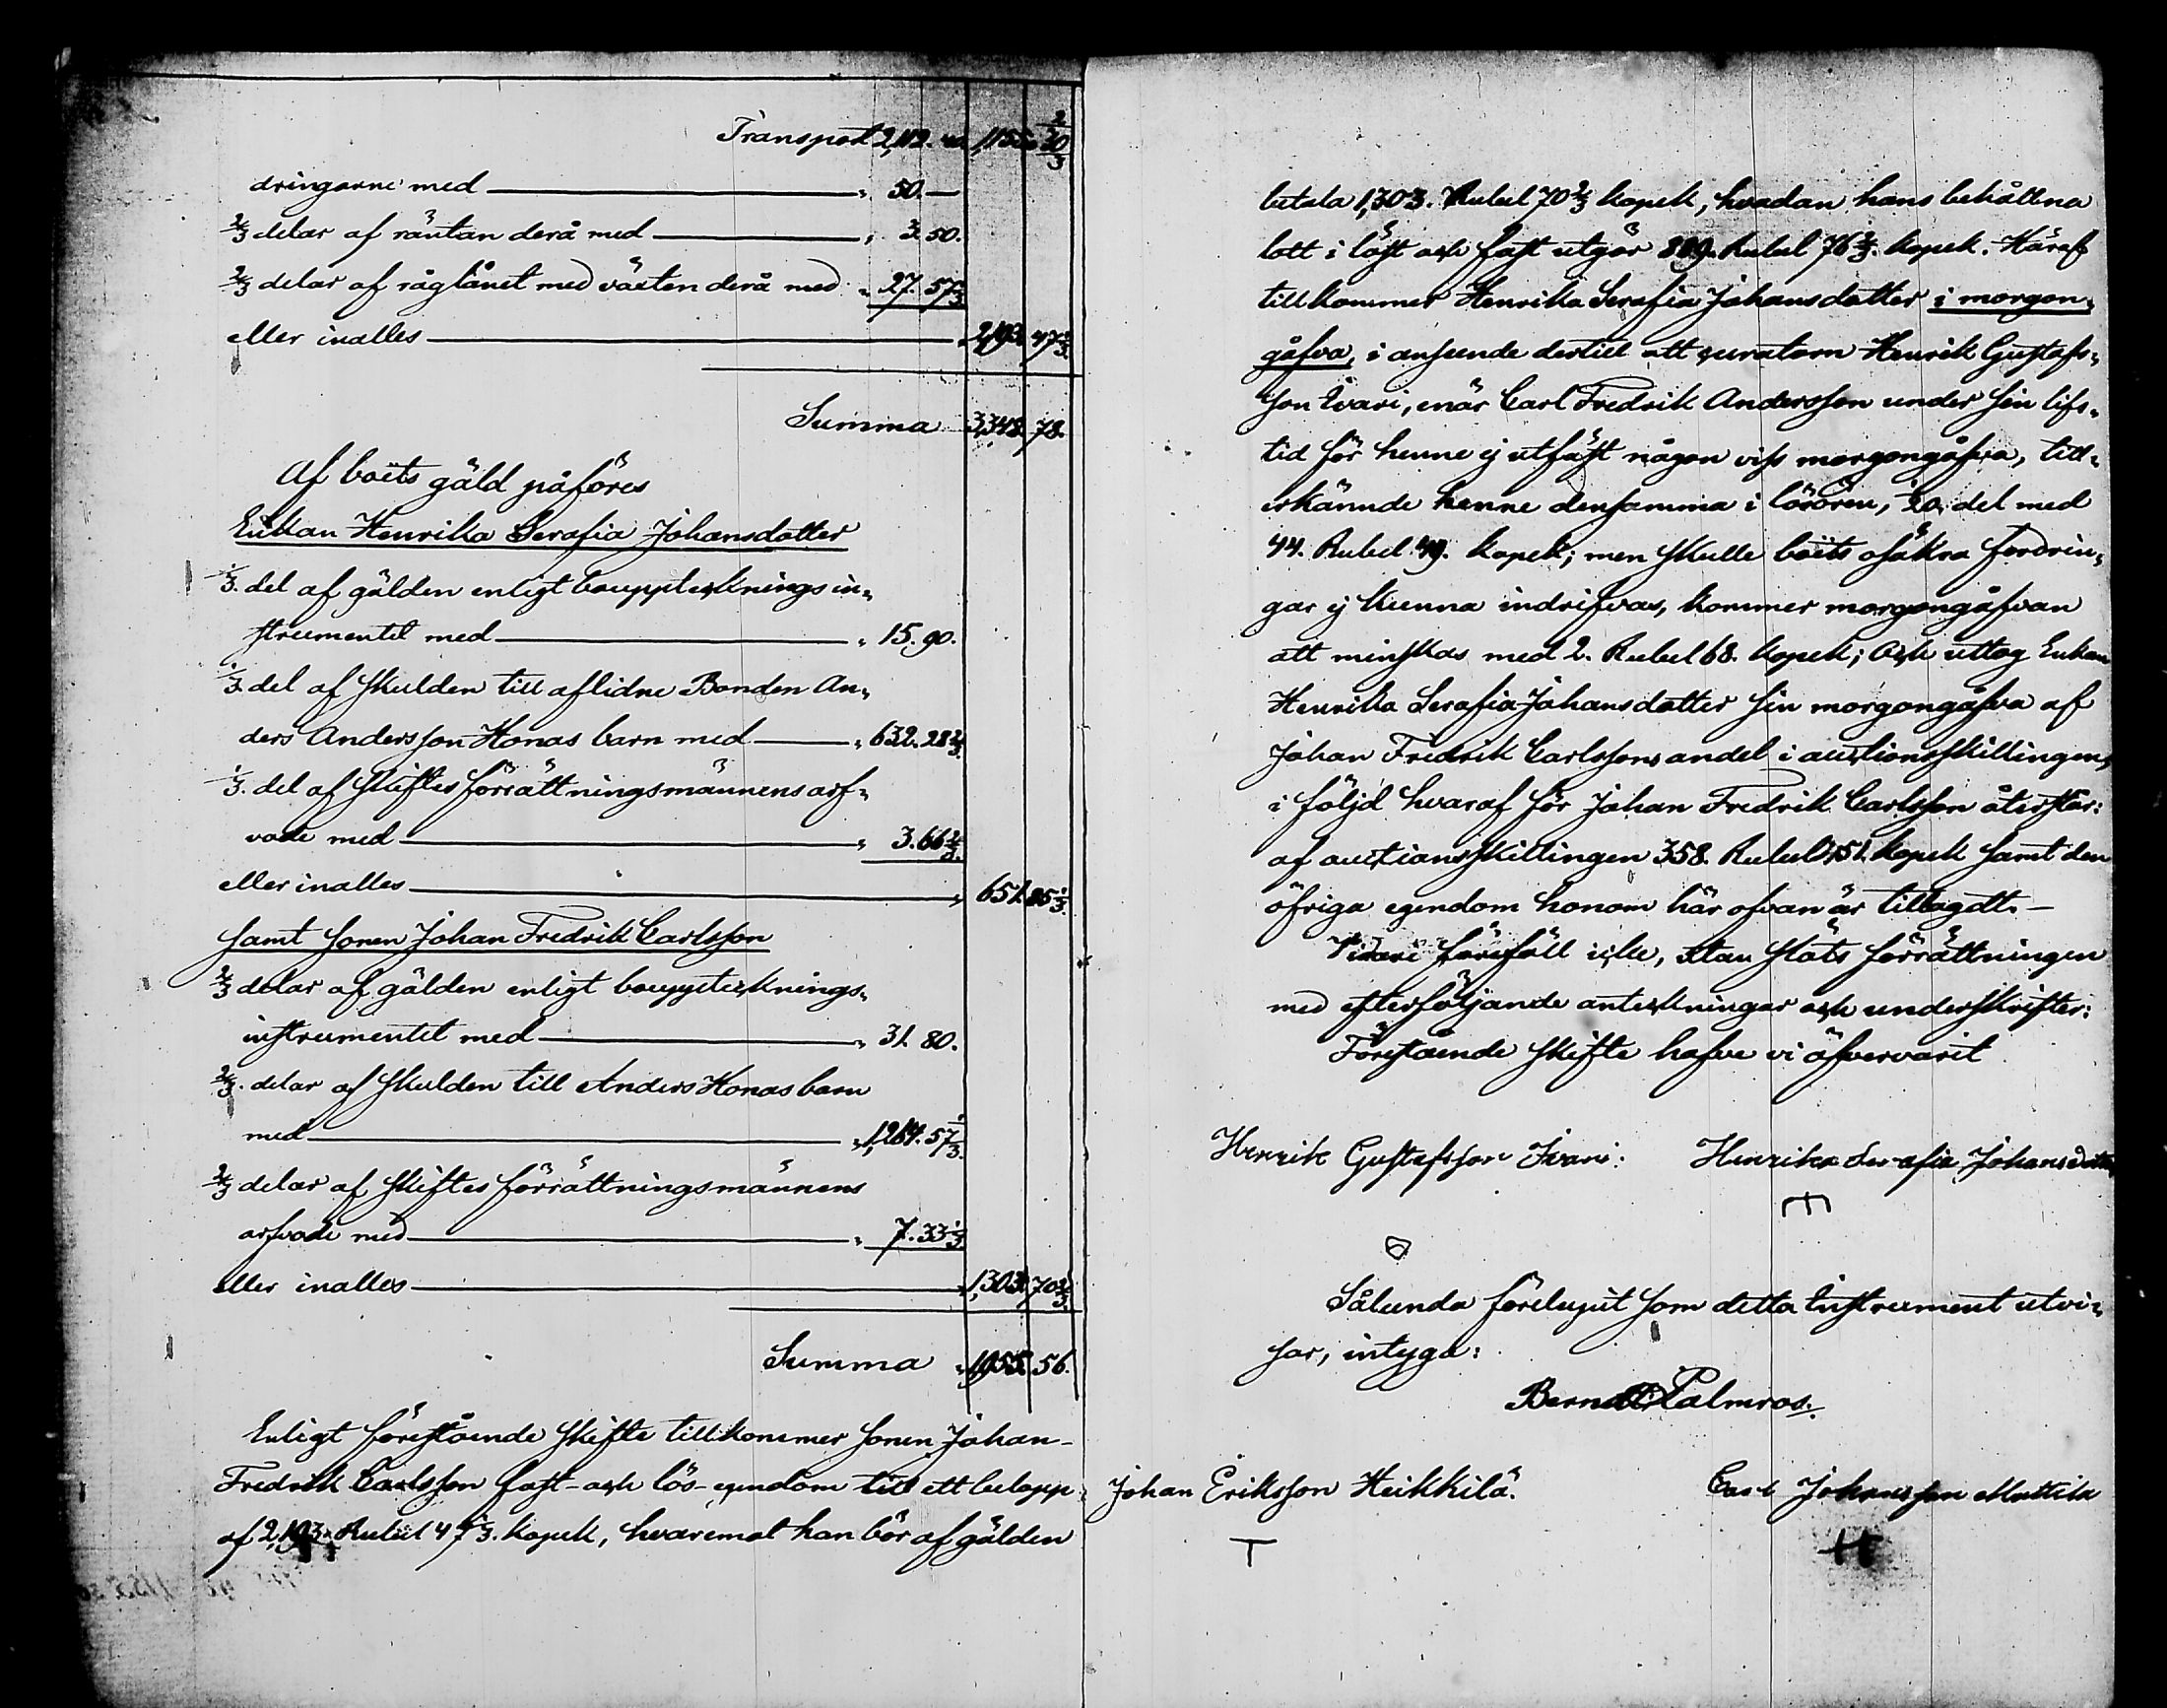 Transport 2,112. 40. 1,155. 30 2/3
dringarne med — „ 50.—
2/3 delar af räntan derå med — „ 3. 50.
2/3 delar af råglånet med växten derå med „ 27. 57 1/3
eller inalles — „ 2,193. 47 1/3.
Summa 3,348. 78.
Af boëts gäld påföres
Enkan Henrika Serafia Johansdotter
1/3. del af gälden enligt bouppteckningsin-
strumentet med — „ 15. 90.
1/3. del af skulden till aflidne Bonden An-
ders Andersson Honas barn med — „ 632. 28 2/3.
1/3. del af skiftesförrättningsmännens arf-
vode med — „ 3. 66 2/3.
eller inalles — „ 651. 85 1/3.
samt sonen Johan Fredrik Carlsson
2/3 delar af gälden enligt bouppteknings-
instrumentet med — „ 31. 80.
2/3. delar af skulden till Anders Honas barn
med — „ 1,264. 57 1/3.
2/3 delar af skiftesförrättningsmännens
arfvode med — „ 7. 33 1/3.
eller inalles — „ 1,303. 70 2/3.
Summa „ 1,955. 56.
Enligt förestående skifte tillkommer sonen Johan
Fredrik Carlsson fast- och lös- egendom till ett belopp
af 2,193. Rubel 47 1/3. kopek, hvaremot han bör af gälden
betala 1,303. Rubel 70 2/3 kopek, hvadan hans behållna
lott i löst och fast utgör 889. Rubel 76 2/3. kopek. Häraf
tillkommer Henrika Serafia Johansdotter i morgon-
gåfva, i anseende dertill att curatorn Henrik Gustafs-
son Ivari, enär Carl Fredrik Andersson under sin lifs-
tid för henne ej utfäst någon viss morgongåfva, till-
erkännde henne densamma i lösören, 1/20 del med
44. Rubel 49. kopek; men skulle boëts osäkra fordrin-
gar ej kunna indrifvas, kommer morgongåfvan
att minskas med 2. Rubel 68. kopek; och uttog Enkan
Henrika Serafia Johansdotter sin morgongåfva af
Johan Fredrik Carlssons andel i auctionsskillingen,
i följd hvaraf för Johan Fredrik Carlsson återstår:
af auctionsskillingen 358. Rubel 51. kopek samt den
öfriga egendom honom här ofvan är tillagdt.—
Vidare föreföll icke, utan slöts förrättningen
med efterföljande anteckningar och underskrifter:
Förestående skifte hafve vi öfvervarit
Henrik Gustafsson Ivari: Henrika Serafia Johansdotter
Sålunda förelupit som detta Instrument utvi-
sar, intyga:
Berndt Palmros.
Johan Eriksson Heikkilä. Carl Johansson Mattila